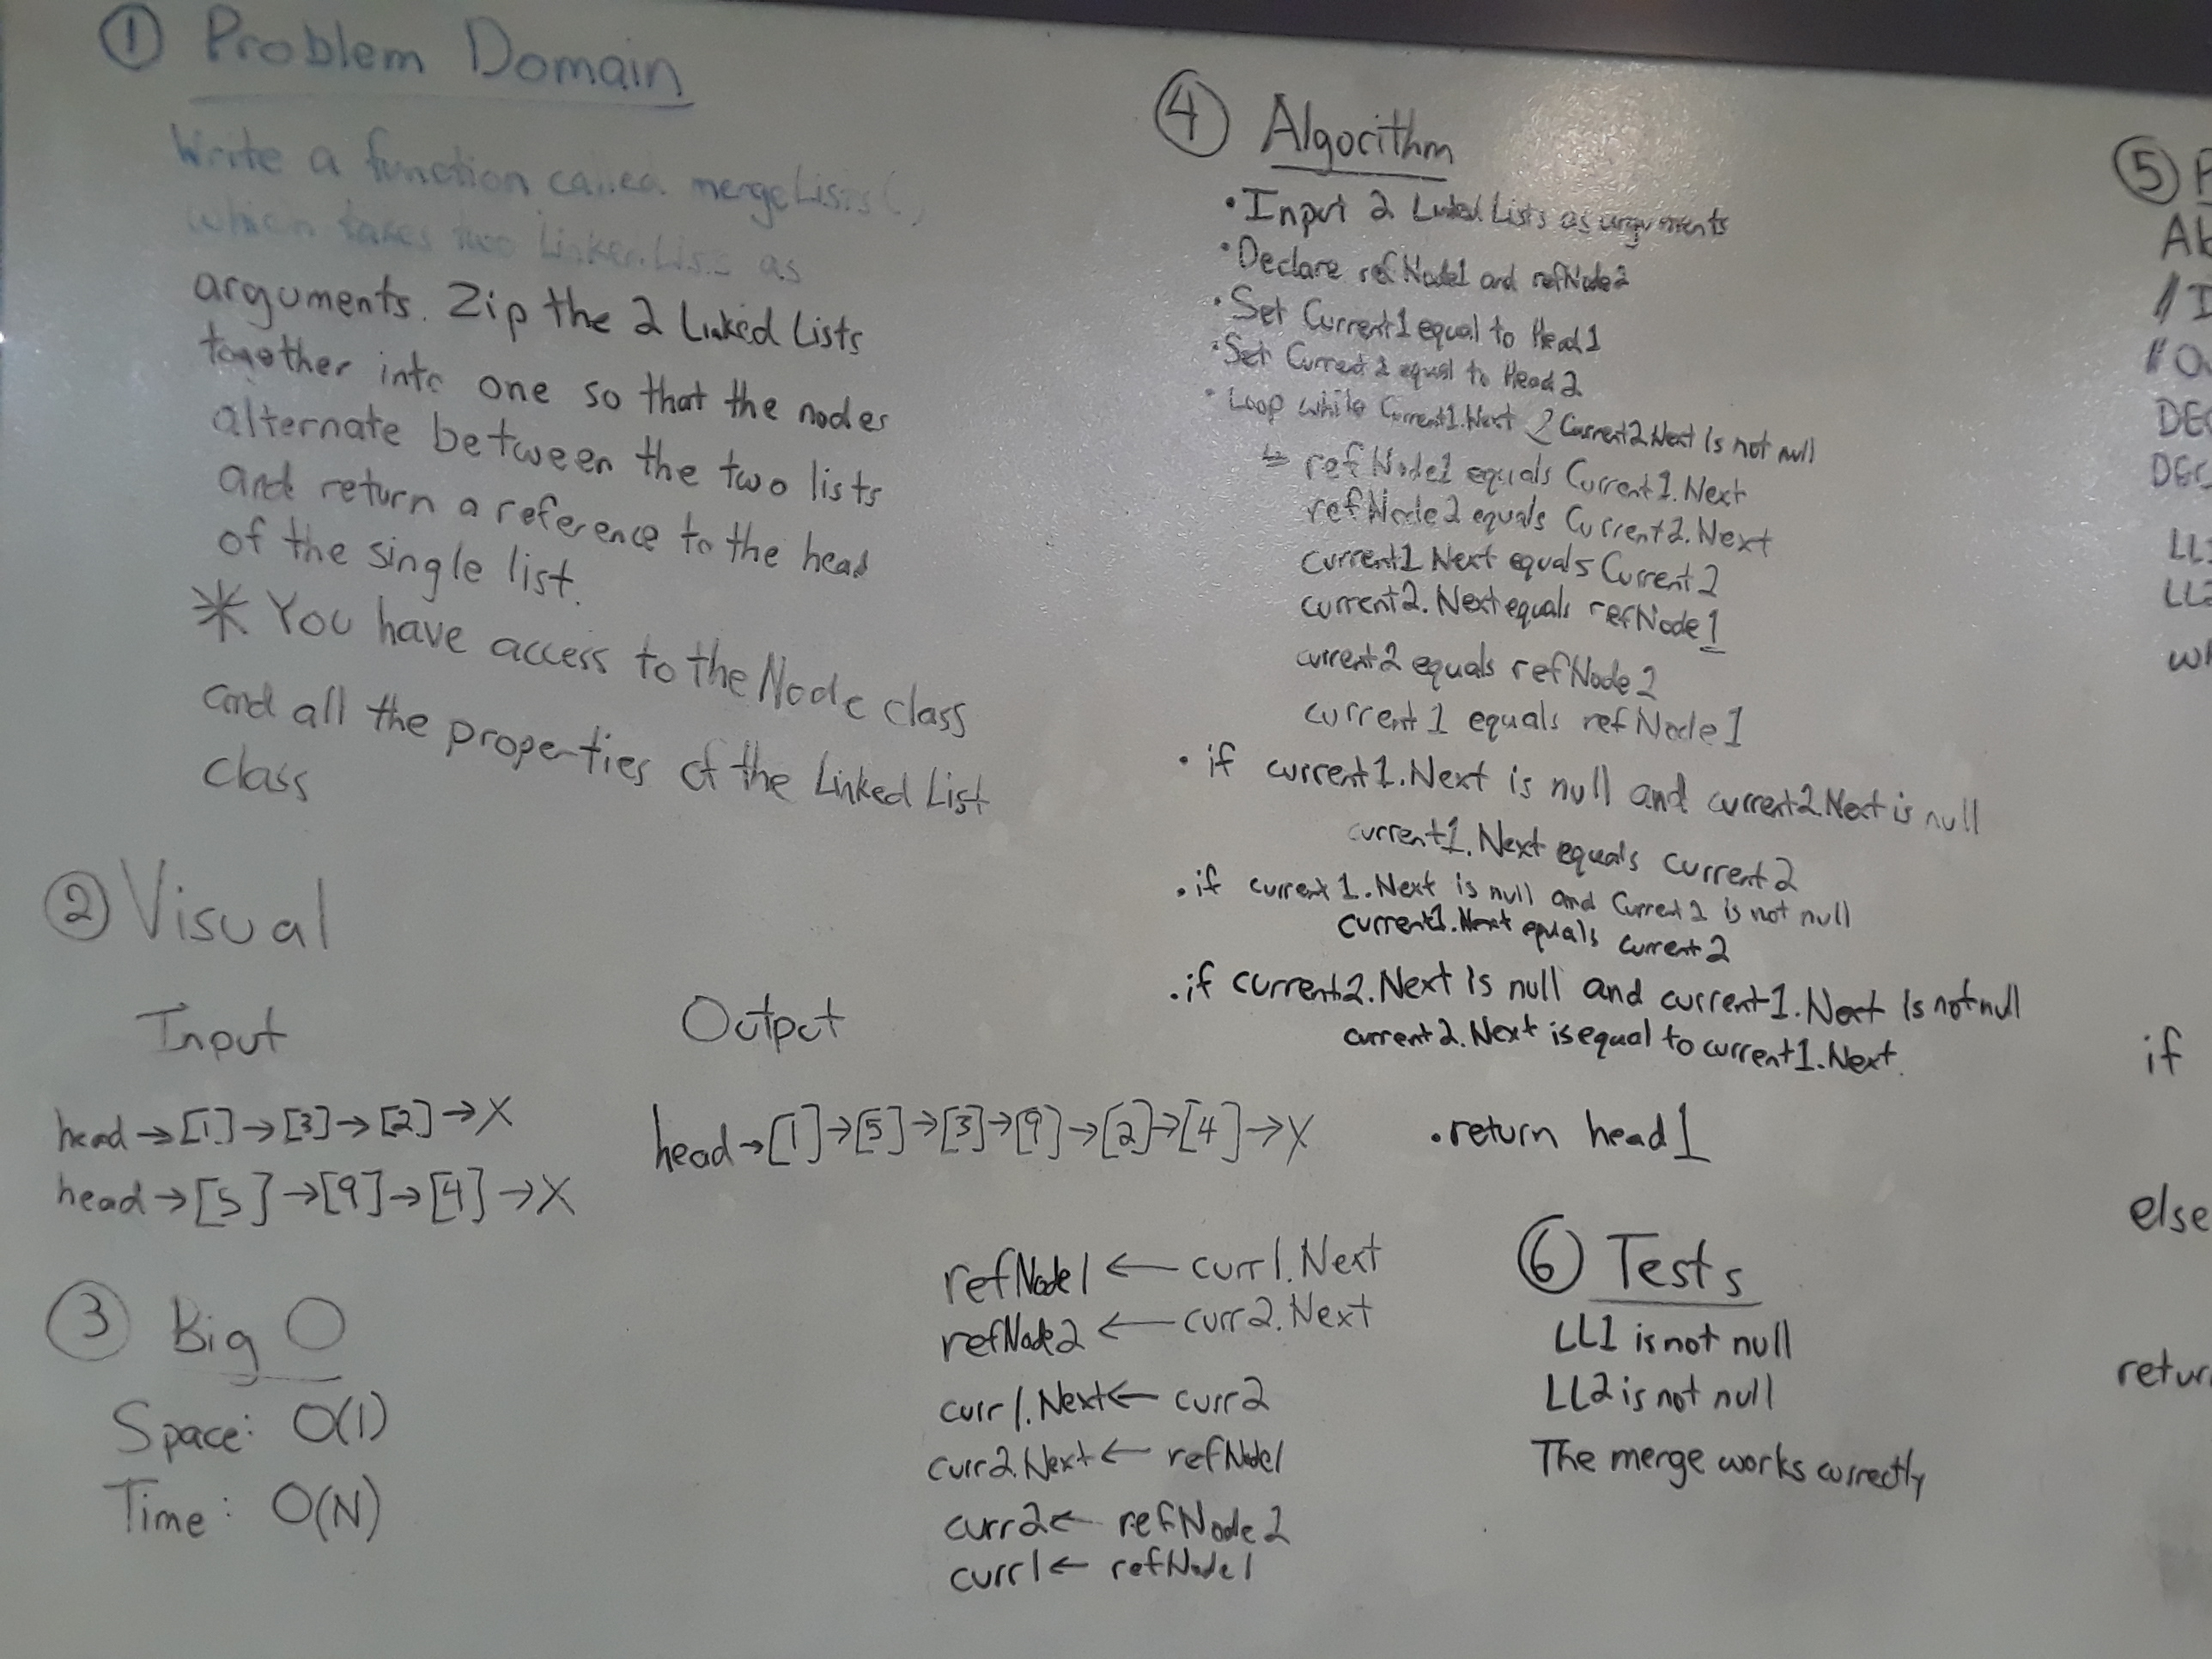 ① Problem Domain
Write a function called mergeLists(
which takes two Linked Lists as
arguments. Zip the 2 Linked Lists
together into one so that the nodes
alternate between the two lists
and return a reference to the head
of the single list.
* You have access to the Node class
and all the properties of the Linked List
class
② Visual
Input
head → [1] → [3] → [2] → X
head → [5] → [9] → [4] → X
Output
head → [1] → [5] → [3] → [9] → [2] → [4] → X
③ Big O
Space: O(1)
Time: O(N)
refNode1 ← curr1.Next
refNode2 ← curr2.Next
curr1.Next ← curr2
curr2.Next ← refNode1
curr2 ← refNode2
curr1 ← refNode1
④ Algorithm
• Input 2 Linked Lists as arguments
• Declare refNode1 and refNode2
• Set Current1 equal to Head1
• Set Current2 equal to Head2
• Loop while Current1.Next & Current2.Next is not null
↳ refNode1 equals Current1.Next
refNode2 equals Current2.Next
current1 Next equals Current2
current2.Next equals refNode1
current2 equals refNode2
current1 equals refNode1
• if current1.Next is null and current2.Next is null
current1.Next equals current2
• if current1.Next is null and Current2 is not null
current1.Next equals current2
• if current2.Next is null and current1.Next is not null
current2.Next is equal to current1.Next.
• return head1
⑥ Tests
LL1 is not null
LL2 is not null
The merge works correctly
⑤ P
//I
DEC
DEC
LL1
LL2
wh
if
else
retur